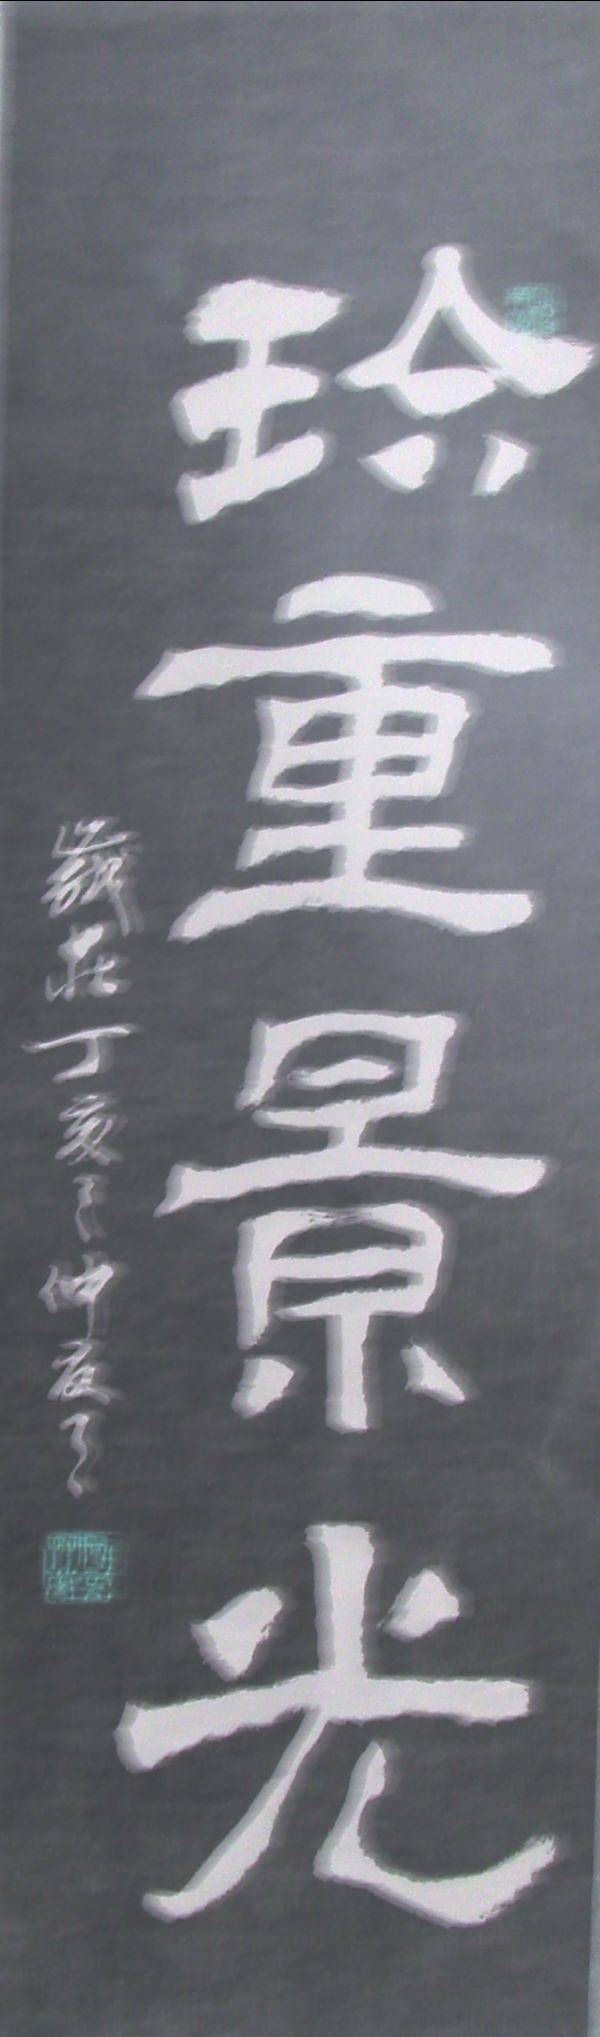 珍重景光
歲在丁亥之仲夏